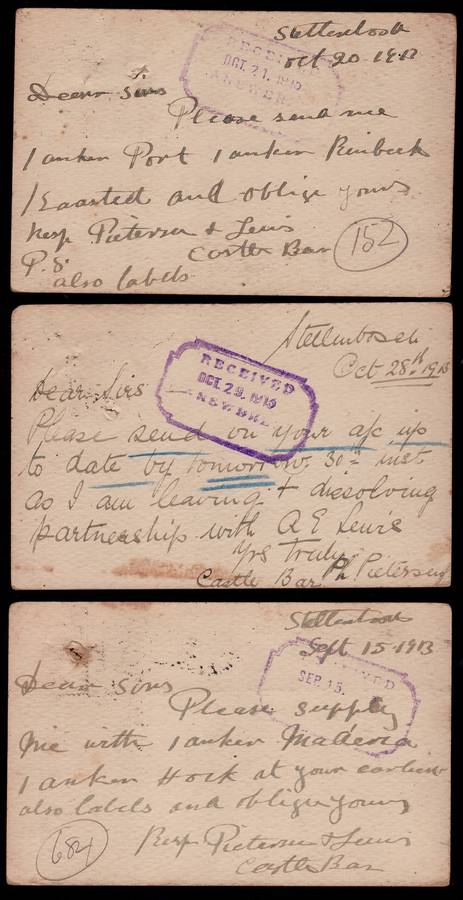 Stellenbosch
Oct 20 1913
RECEIVED
OCT. 21. 1913
ANSWERED
Dear Sirs
Please send me
1 anker Port 1 anker
and oblige yours
Resp Pietersen & Lewis
Castle Bar
152
P.S.
also labels
Stellenbosch
Oct 28th 1913
RECEIVED
OCT. 29. 1913
ANSWERED
Dear Sirs
Please send on your a/c up
to date by tomorrow 30th inst
as I am leaving & dissolving
partnership with A E Lewis
Yrs truly
Castle Bar Ph Pietersen
Stellenbosch
Sept 15 1913
RECEIVED
SEP. 15.
Dear Sirs
Please supply
me with 1 anker Madeira
1 anker Hock at your earliest
also labels and oblige yours
684
Resp Pietersen & Lewis
Castle Bar